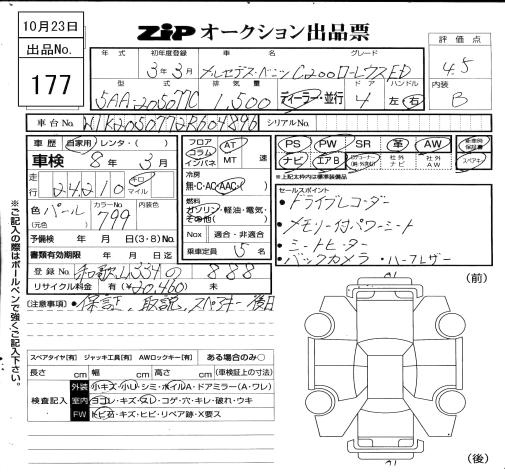 10月23日
出品No.
177
ZIPオークション出品票
年式 初年度登録 車名 グレード
3年3月 メルセデス・ベンツ C200ローレウスED
型式 排気量 ドア ハンドル
5AA-205077C 1,500 ディーラー・並行 4 左・右
評価点
4.5
内装
B
車台No. W1K2050772R604896 シリアルNo.
車歴 自家用・レンタ・( )
車検 8年3月
走行 24210 キロ マイル
色 パール カラーNo. 799 内装色
(元色)
予備検 年 月 日(3・8)No.
書類有効期限 年 月 日迄
登録No. 和歌山334の 888
リサイクル料金 有(¥20,460) 未
フロア コラム インパネ AT MT 速
冷房
無・C・AC・AAC・( )
燃料
ガソリン・軽油・電気・その他( )
Nox 適合・非適合
乗車定員 5名
PS PW SR 革 AW
ナビ エアB 社外ナビ 社外AW
スペアキー
※上記太枠内は標準装備品
セールスポイント
・ドライブレコーダー
・メモリー付パワーシート
・シートヒーター
・バックカメラ・ハーフレザー
[注意事項]・保証、取説、スペアキー後日
※ご記入の際はボールペンで強くご記入下さい。
スペアタイヤ[有] ジャッキ工具[有] AWロックキー[有] ある場合のみ○
長さ cm 幅 cm 高さ cm (車検証上の寸法)
検査記入
外装 小キズ・小U・シミ・ホイルA・ドアミラー(A・ワレ)
室内 ヨゴレ・キズ・スレ・コゲ・穴・キレ・破れ・ウキ
FW トビ石・キズ・ヒビ・リペア跡・X要ス
(前)
(後)